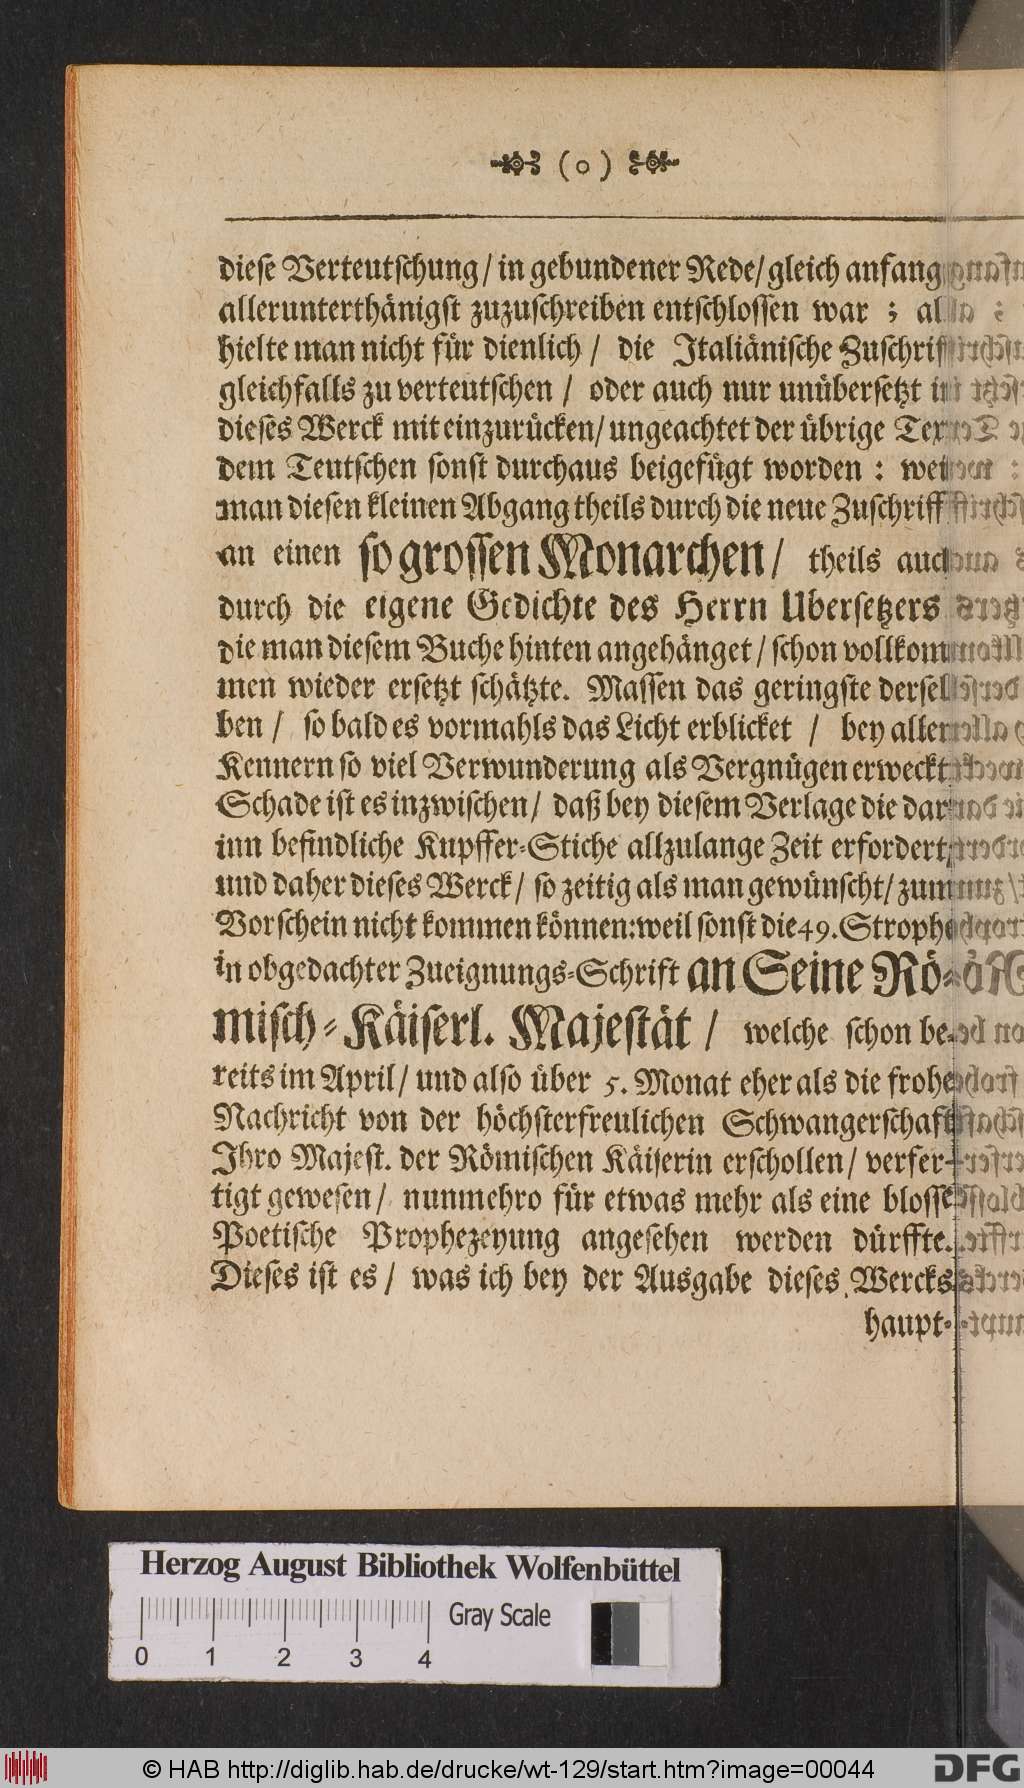 ( o )
diese Verteutschung/ in gebundener Rede/ gleich anfang
allerunterthänigst zuzuschreiben entschlossen war ; al
hielte man nicht für dienlich / die Italiänische Zuschrif
gleichfalls zu verteutschen / oder auch nur unübersetzt in
dieses Werck mit einzurücken/ ungeachtet der übrige Tex
dem Teutschen sonst durchaus beigefügt worden : wei
man diesen kleinen Abgang theils durch die neue Zuschriff
an einen so grossen Monarchen/ theils auch
durch die eigene Gedichte des Herrn Ubersetzers
die man diesem Buche hinten angehänget/ schon vollkom
men wieder ersetzt schätzte. Massen das geringste dersel
ben / so bald es vormahls das Licht erblicket / bey allen
Kennern so viel Verwunderung als Vergnügen erweckt
Schade ist es inzwischen/ daß bey diesem Verlage die dar
inn befindliche Kupffer-Stiche allzulange Zeit erfordert,
und daher dieses Werck/ so zeitig als man gewünscht/ zum
Vorschein nicht kommen können: weil sonst die 49. Strophe
in obgedachter Zueignungs-Schrift an Seine Rö-
misch-Käiserl. Majestät / welche schon be-
reits im April/ und also über 5. Monat eher als die frohe
Nachricht von der höchsterfreulichen Schwangerschaft
Ihro Majest. der Römischen Käiserin erschollen/ verfer-
tigt gewesen/ nunmehro für etwas mehr als eine blosse
Poetische Prophezeyung angesehen werden dürffte.
Dieses ist es/ was ich bey der Ausgabe dieses Wercks
haupt-
Herzog August Bibliothek Wolfenbüttel
Gray Scale
0 1 2 3 4
© HAB http://diglib.hab.de/drucke/wt-129/start.htm?image=00044
DFG